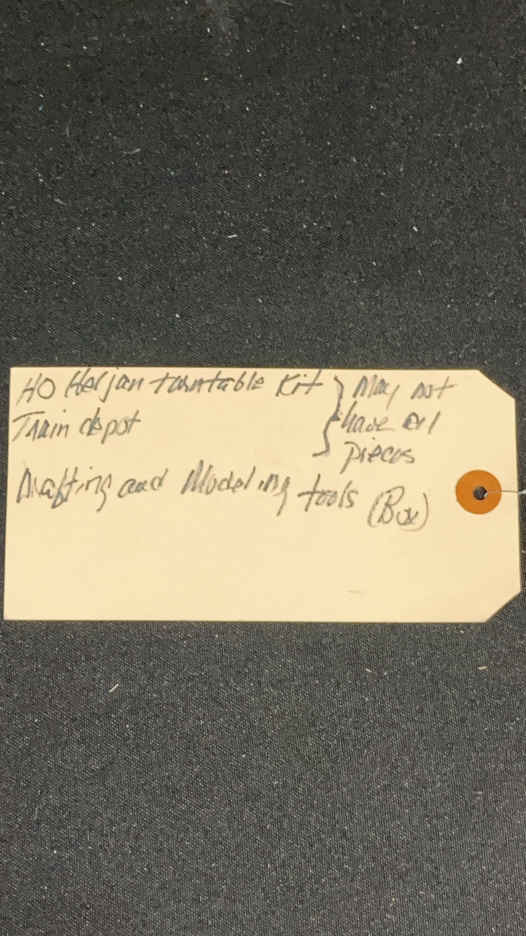 HO Heljan turntable Kit } May not
Train depot } have all
pieces
Drafting and Modeling tools (Box)